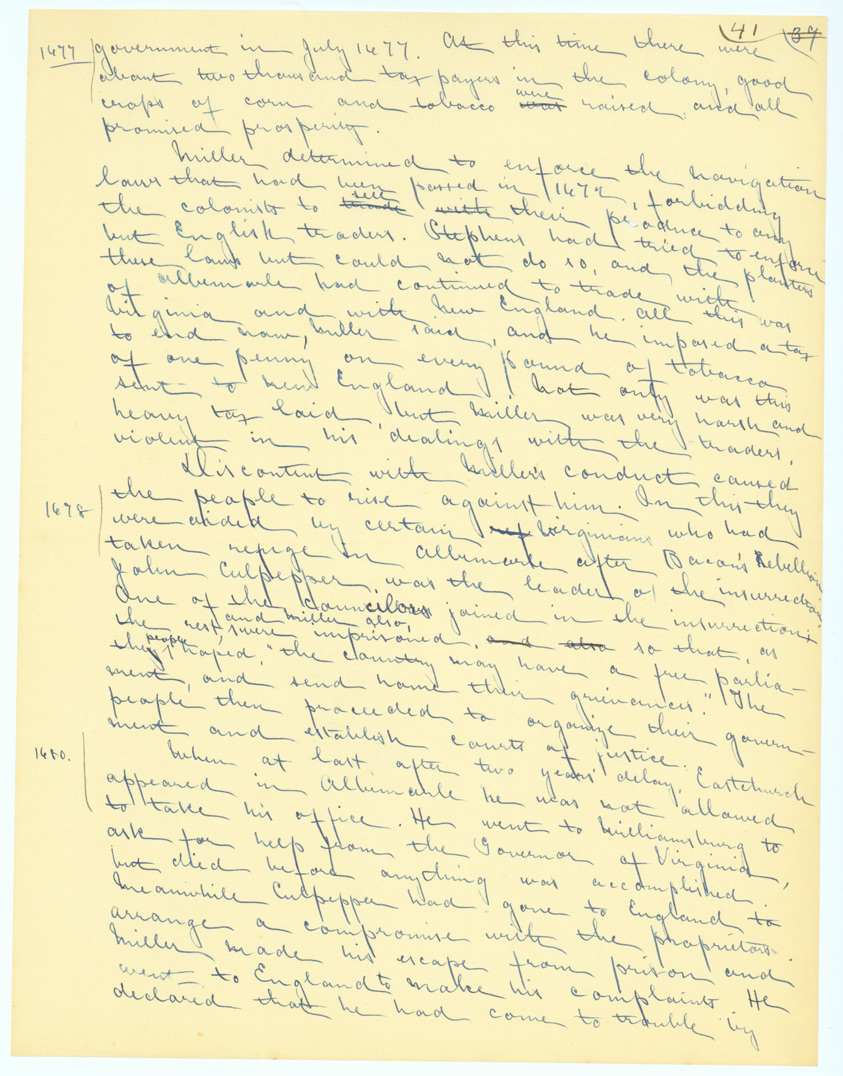 41 39
1677 government in July 1677. At this time there were
about two thousand tax payers in the colony, good
crops of corn and tobacco was were raised, and all
promised prosperity.
Miller determined to enforce the navigation
laws that had been passed in 1672, forbidding
the colonists to trade sell with their produce to any
but English traders. Stephens had tried to enforce
these laws but could not do so, and the planters
of Albemarle had continued to trade with
Virginia and with New England. All this was
to end now, Miller said, and he imposed a tax
of one penny on every pound of tobacco
sent to New England. Not only was this
heavy tax laid, but Miller was very harsh and
violent in his dealings with the traders.
Discontent with Miller's conduct caused
the people to rise against him. In this they
1678 were aided by certain ref Virginians who had
taken refuge in Albemarle after Bacon's Rebellion
John Culpepper was the leader of the insurrection.
One of the Councilors joined in the insurrection;
the rest, and Miller also, were imprisoned, and also so that, as
they people hoped, "the country may have a free parlia-
ment, and send home their grievances." The
people then proceeded to organize their govern-
ment and establish courts of justice.
1680. When at last, after two years' delay, Eastchurch
appeared in Albemarle he was not allowed
to take his office. He went to Williamsburg to
ask for help from the Governor of Virginia,
but died before anything was accomplished.
Meanwhile Culpepper had gone to England to
arrange a compromise with the proprietors.
Miller made his escape from prison and
went to England to make his complaints. He
declared that he had come to trouble by